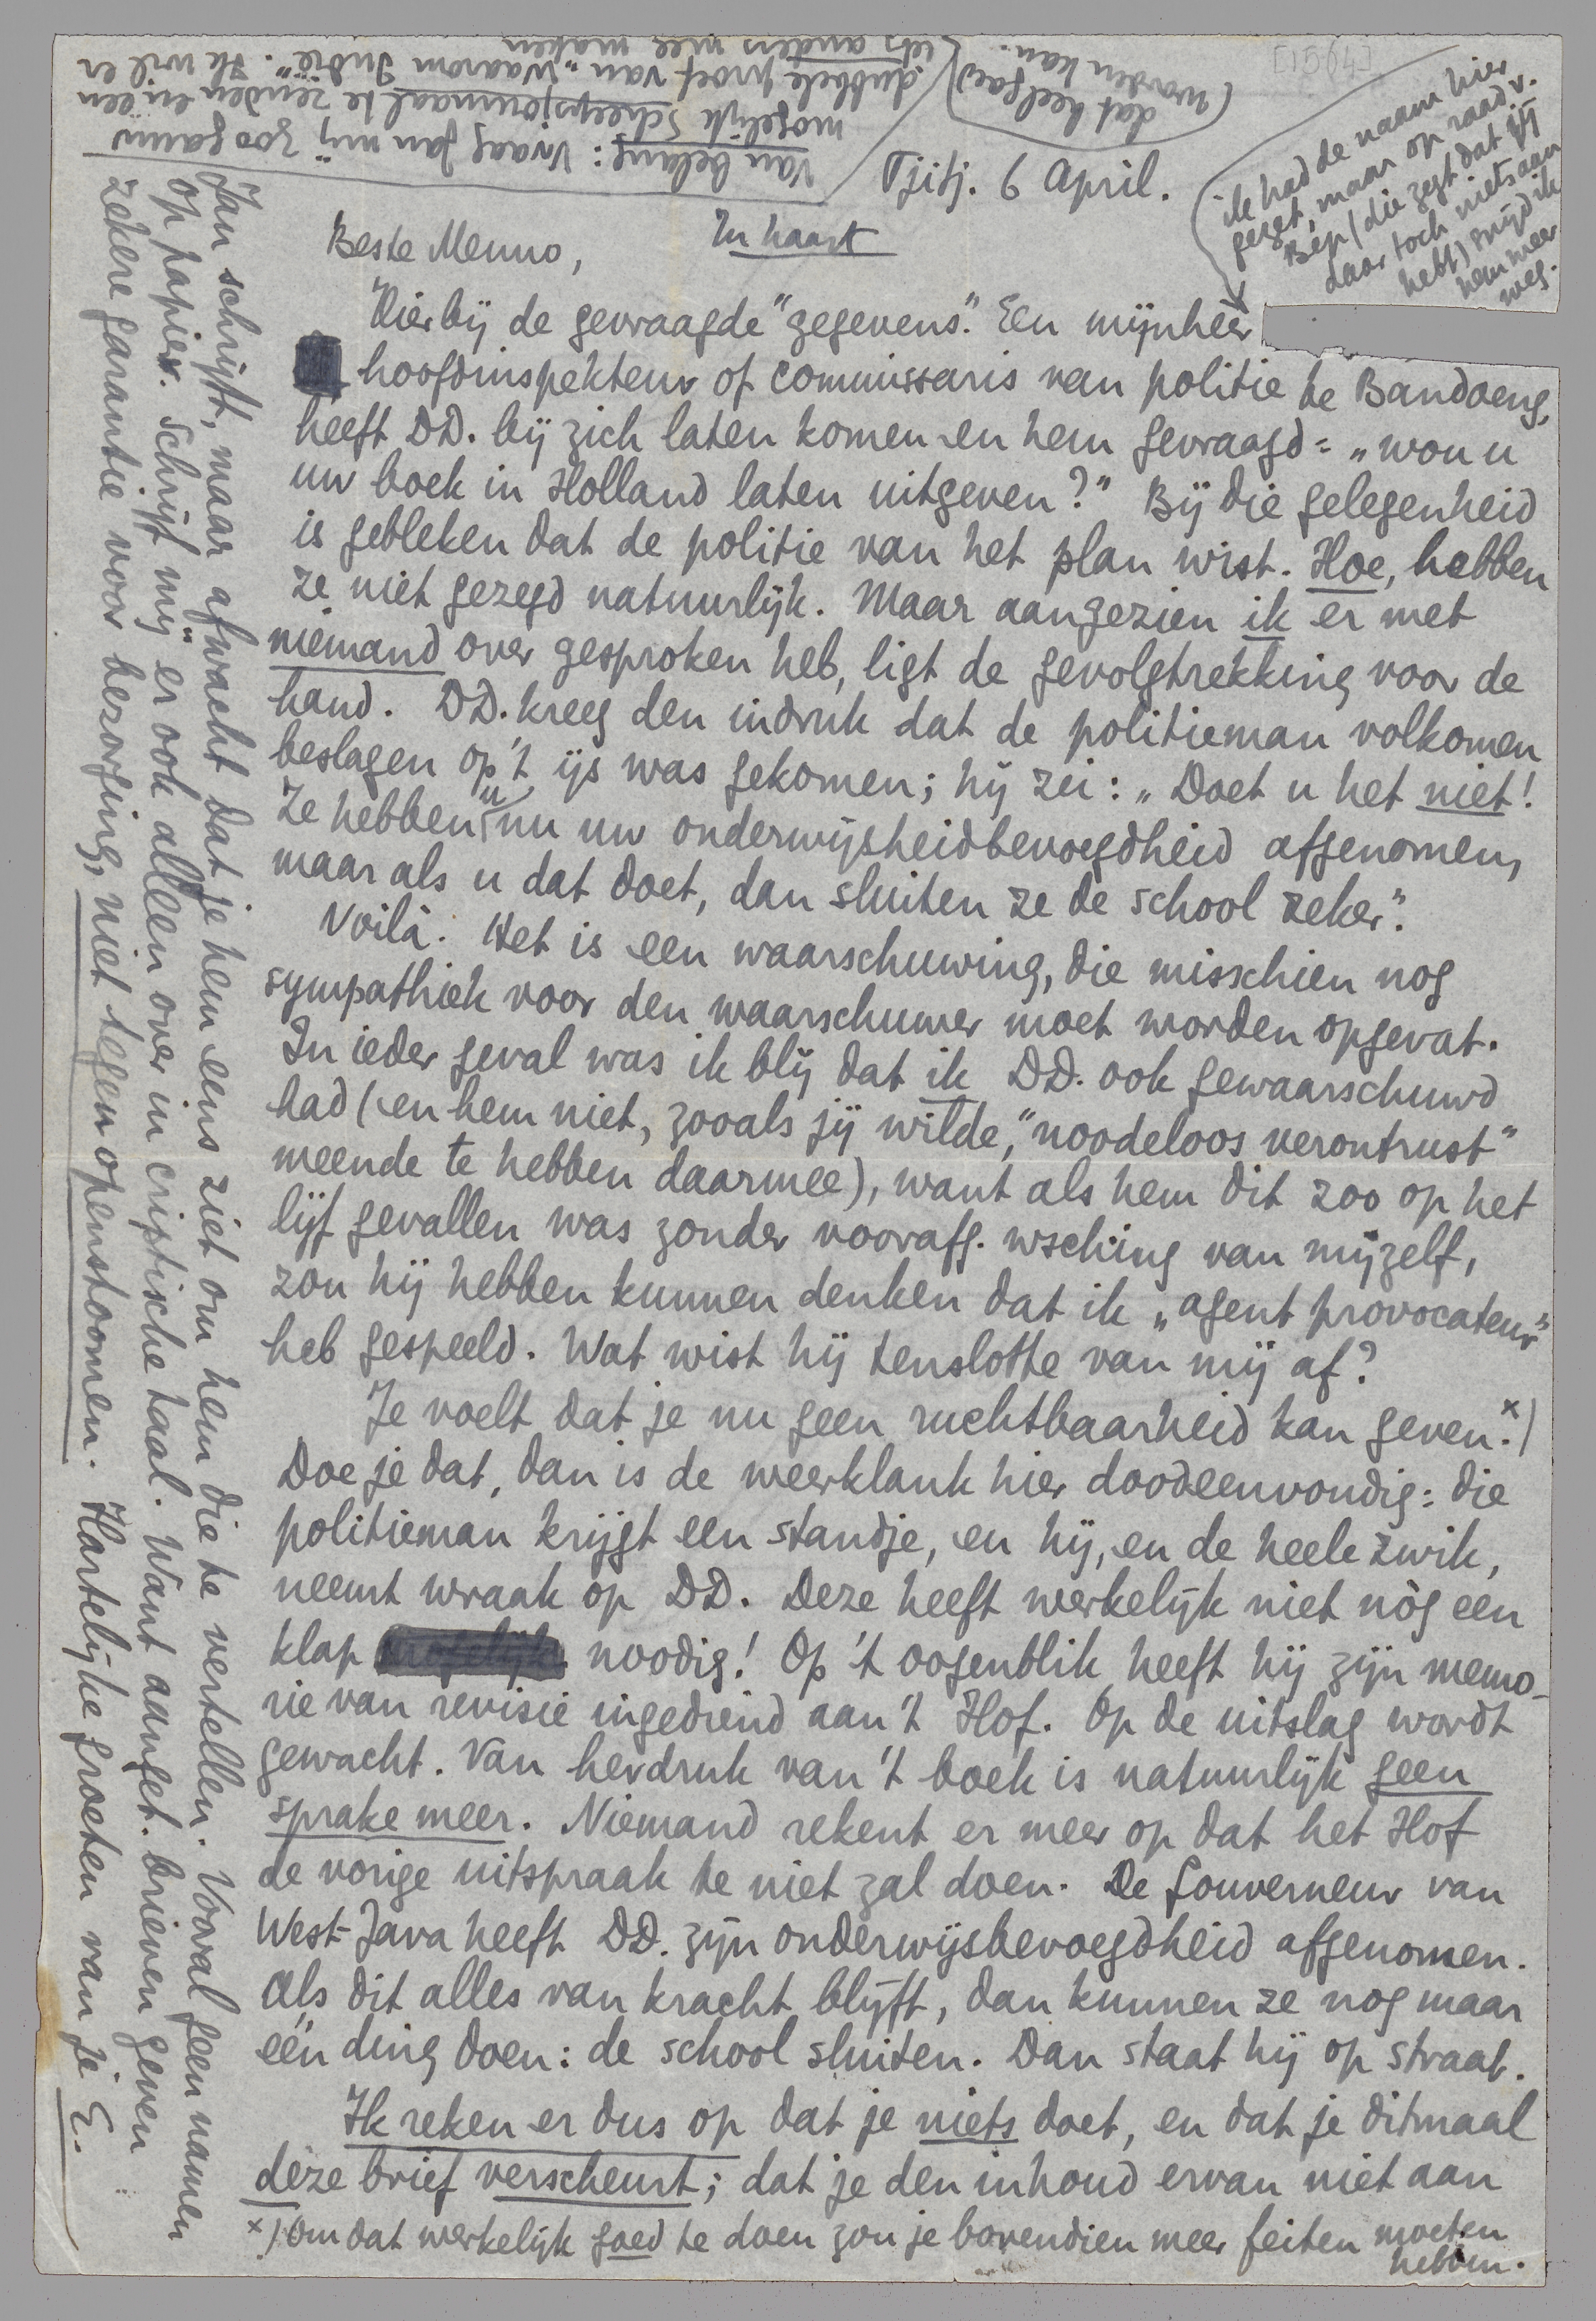 [1564]
Tjitj. 6 April.
In haast
Beste Menno,
Hierbij de gevraagde "gegevens". Een mijnheer
hoofdinspekteur of commissaris van politie te Bandoeng,
heeft DD. bij zich laten komen en hem gevraagd: „wou u
uw boek in Holland laten uitgeven?" Bij die gelegenheid
is gebleken dat de politie van het plan wist. Hoe, hebben
ze niet gezegd natuurlijk. Maar aangezien ik er met
niemand over gesproken heb, ligt de gevolgtrekking voor de
hand. DD. kreeg den indruk dat de politieman volkomen
beslagen op 't ijs was gekomen; hij zei: „Doet u het niet!
Ze hebben u nu uw onderwijsheidbevoegdheid afgenomen,
maar als u dat doet, dan sluiten ze de school zeker".
Voilà. Het is een waarschuwing, die misschien nog
sympathiek voor den waarschuwer moet worden opgevat.
In ieder geval was ik blij dat ik DD. ook gewaarschuwd
had (en hem niet, zooals jij wilde, "noodeloos verontrust"
meende te hebben daarmee), want als hem dit zoo op het
lijf gevallen was zonder voorafg. wsching van mijzelf,
zou hij hebben kunnen denken dat ik „agent provocateur"
heb gespeeld. Wat wist hij tenslotte van mij af?
Je voelt dat je nu geen ruchtbaarheid kan geven. x)
Doe je dat, dan is de weerklank hier doodeenvoudig: die
politieman krijgt een standje, en hij, en de heele zwik,
neemt wraak op DD. Deze heeft werkelijk niet nòg een
klap noodig! Op 't oogenblik heeft hij zijn memo-
rie van revisie ingediend aan 't Hof. Op de uitslag wordt
gewacht. Van herdruk van 't boek is natuurlijk geen
sprake meer. Niemand rekent er meer op dat het Hof
de vorige uitspraak te niet zal doen. De Gouverneur van
West-Java heeft DD. zijn onderwijsbevoegdheid afgenomen.
Als dit alles van kracht blijft, dan kunnen ze nog maar
één ding doen: de school sluiten. Dan staat hij op straat.
Ik reken er dus op dat je niets doet, en dat je ditmaal
deze brief verscheurt; dat je den inhoud ervan niet aan
x) Om dat werkelijk goed te doen zou je bovendien meer feiten moeten
hebben.
Jan schrijft, maar afwacht dat je hem eens ziet om hem die te vertellen. Vooral geen namen
op papier. Schrijf mij er ook alleen over in criptische taal. Want aanget. brieven geven
zekere garantie voor bezorging, niet tegen openstoomen. Hartelijke groeten van je E.
ik had de naam hier
gezet, maar op raad v.
Bep (die zegt dat jij
daar toch niets aan
hebt) snijd ik
hem weer
weg.
Van belang: Vraag Jan mij zoo gauw
mogelijk Scheepsjournaal te zenden en een
dubbele proef van „Waarom Indië". Ik wil er
iets anders mee maken
(dat heel goed
worden kan.